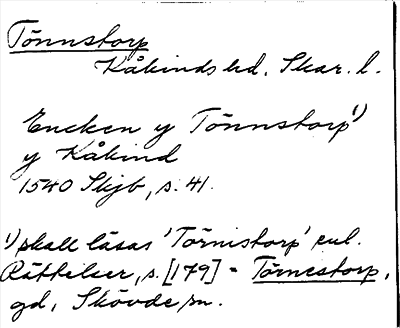 Tönnstorp
Kåkinds hd. Skar. l.
Encken y Tönnstorp¹)
y Kåkind
1540 Skjb, s. 41.
¹) skall läsas 'Törnistorp' enl.
Rättelser, s. [179] = Törnestorp,
gd, Skövde sn.